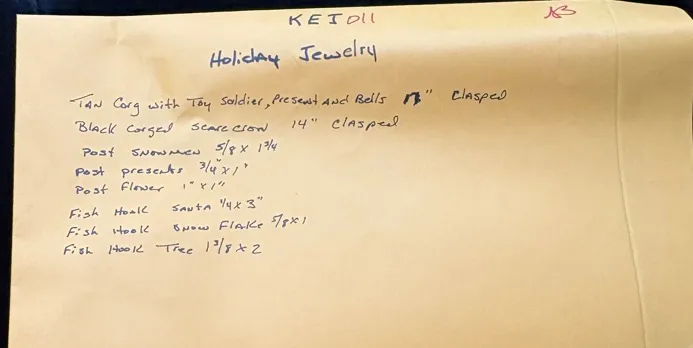 KEI011
Holiday Jewelry
TAN Corg with Toy Soldier, Present AND Bells " Clasped
Black Corged Scarecrow 14" Clasped
Post Snowmen 5/8 x 1 3/4
Post presents 3/4" x 1"
Post Flower 1" x 1"
Fish Hook Santa 1/4 x 3"
Fish Hook Snow Flake 5/8 x 1
Fish Hook Tree 1 3/8 x 2